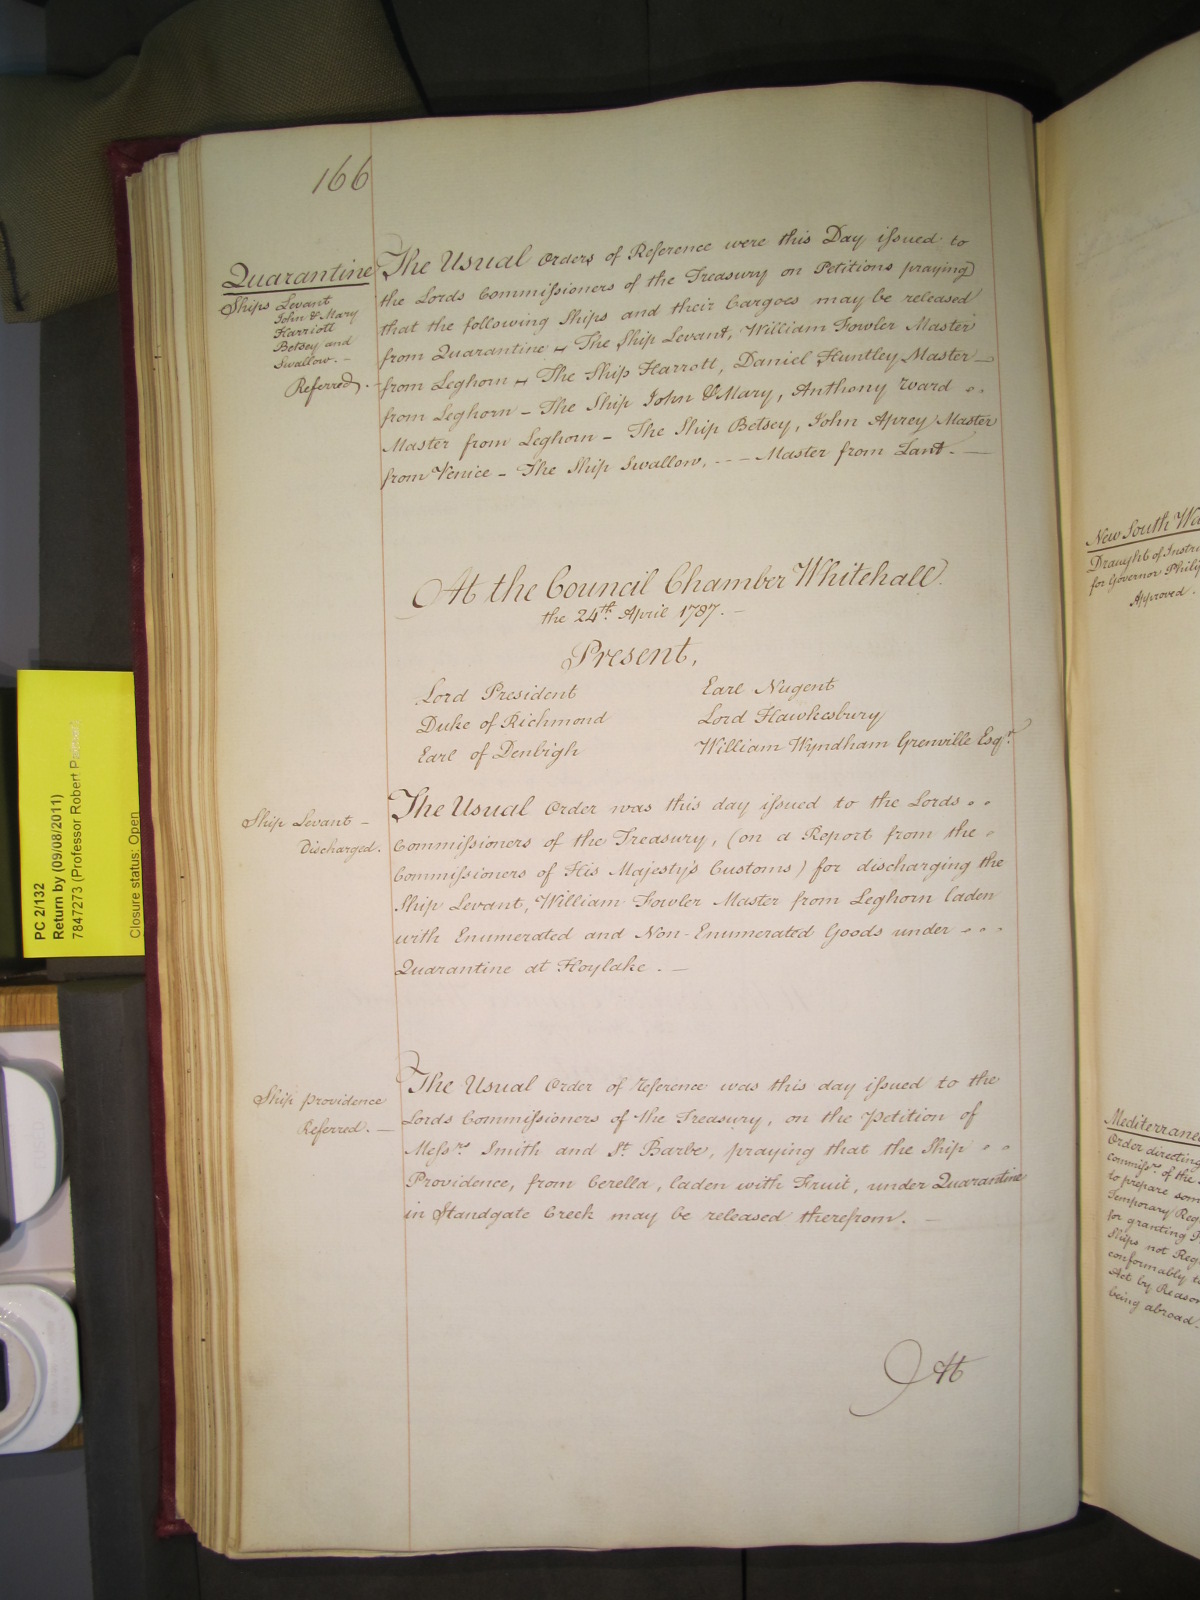 166
Quarantine
Ships Levant
John & Mary
Harriott
Betsey and
Swallow. –
Referred. –
The Usual Orders of Reference were this Day issued to
the Lords Commissioners of the Treasury on Petitions praying
that the following Ships and their Cargoes may be released
from Quarantine – The Ship Levant, William Fowler Master
from Leghorn – The Ship Harrott, Daniel Huntley Master –
from Leghorn – The Ship John & Mary, Anthony Ward
Master from Leghorn – The Ship Betsey, John Aprey Master
from Venice – The Ship Swallow, - - - Master from Zant. –
At the Council Chamber Whitehall
the 24th. April 1787. –
Present,
Lord President
Duke of Richmond
Earl of Denbigh
Earl Nugent
Lord Hawkesbury
William Wyndham Grenville Esqr.
Ship Levant –
Discharged.
The Usual Order was this day issued to the Lords
Commissioners of the Treasury, (on a Report from the
Commissioners of His Majesty's Customs) for discharging the
Ship Levant, William Fowler Master from Leghorn laden
with Enumerated and Non-Enumerated Goods under
Quarantine at Hoylake. –
Ship Providence
Referred. –
The Usual Order of Reference was this day issued to the
Lords Commissioners of the Treasury, on the Petition of
Messrs. Smith and St. Barbe, praying that the Ship
Providence, from Cerella, laden with Fruit, under Quarantine
in Standgate Creek may be released therefrom. –
At
PC 2/132
Return by (09/08/2011)
7847273 (Professor Robert
Closure status: Open
New South Wa
Draught of Instru
for Governor Philip
Approved.
Mediterrane
Order directing
commissrs. of the
to prepare som
Temporary Reg
for granting P
Ships not Reg
conformably t
Act by Reason
being abroad.